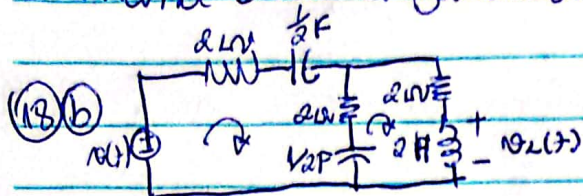 ½F
2ω
18 b
2ω
2ω
v(t)
1/2F
2H
+
-
v_L(t)